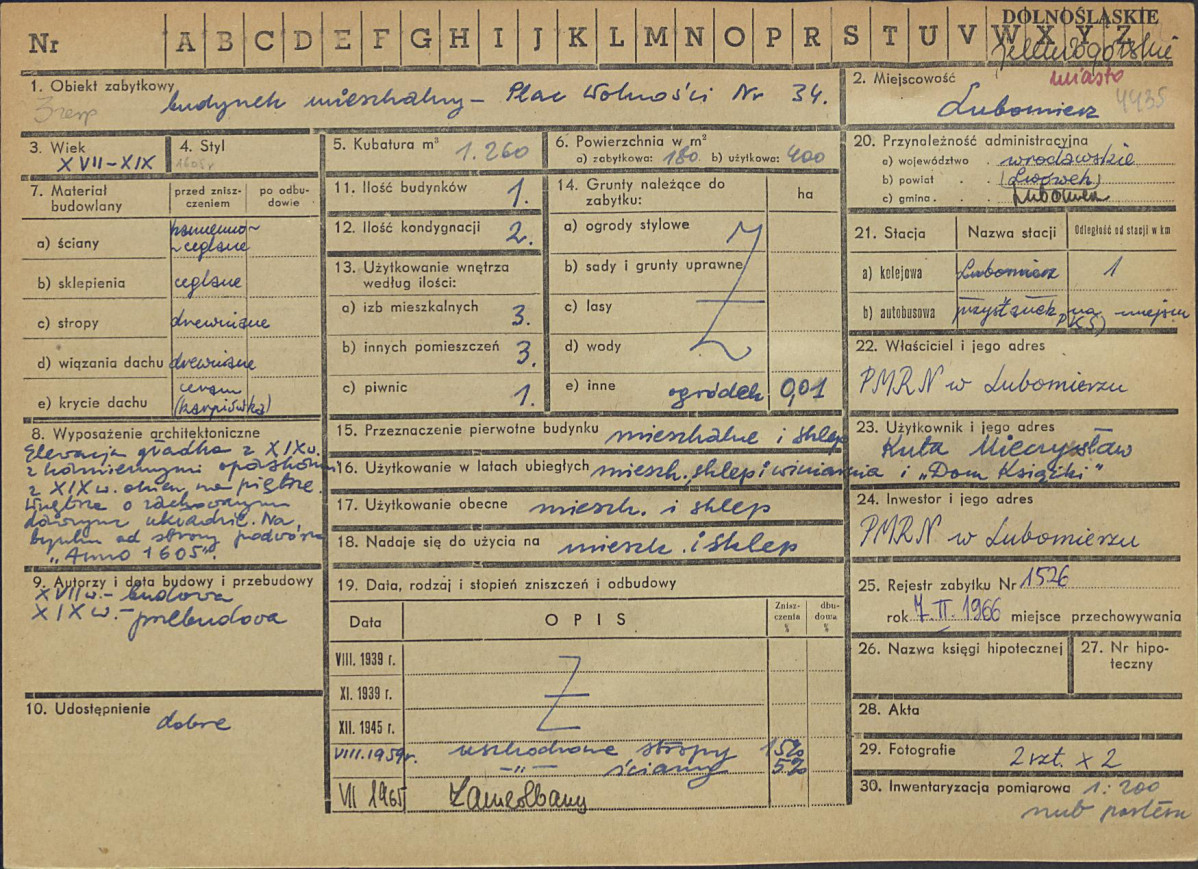 DOLNOŚLĄSKIE
Nr A B C D E F G H I J K L M N O P R S T U V W X Y Z
jeleniogórskie
1. Obiekt zabytkowy budynek mieszkalny – Plac Wolności Nr 34.
2. Miejscowość miasto
Lubomierz 4435
3. Wiek
XVII–XIX
4. Styl
1605 r
5. Kubatura m³ 1.260
6. Powierzchnia w m²
a) zabytkowa: 180 b) użytkowa: 400
7. Materiał budowlany
przed zniszczeniem
po odbudowie
a) ściany kamienno-
ceglane
b) sklepienia ceglane
c) stropy drewniane
d) wiązania dachu drewniane
e) krycie dachu ceram
(karpiówka)
8. Wyposażenie architektoniczne
Elewacja gładka z XIX w.
z kamiennymi opaskami
z XIX w. okien na piętrze.
Wnętrze o zachowanym
dawnym układzie. Na
tynku od strony podwórza
„Anno 1605".
9. Autorzy i data budowy i przebudowy
XVII w. – budowa
XIX w. – przebudowa
10. Udostępnienie dobre
11. Ilość budynków 1.
12. Ilość kondygnacji 2.
13. Użytkowanie wnętrza
według ilości:
a) izb mieszkalnych 3.
b) innych pomieszczeń 3.
c) piwnic 1.
14. Grunty należące do
zabytku: ha
a) ogrody stylowe
b) sady i grunty uprawne
c) lasy
d) wody
e) inne ogródek 0,01
15. Przeznaczenie pierwotne budynku mieszkalne i sklep
16. Użytkowanie w latach ubiegłych mieszk. sklep i winiarnia i „Dom Książki"
17. Użytkowanie obecne mieszk. i sklep
18. Nadaje się do użycia na mieszk. i sklep
19. Data, rodzaj i stopień zniszczeń i odbudowy
Data OPIS Zniszczenia % dbudowa %
VIII. 1939 r.
XI. 1939 r.
XII. 1945 r.
VIII. 1959 r. uszkodzone stropy 15%
–„– ściany 5%
VI 1965 Zaniedbany
20. Przynależność administracyjna
a) województwo wrocławskie
b) powiat (Lwówek)
c) gmina Lubomierz
21. Stacja Nazwa stacji Odległość od stacji w km
a) kolejowa Lubomierz 1
b) autobusowa przystanek PKS na miejscu
22. Właściciel i jego adres
PMRN w Lubomierzu
23. Użytkownik i jego adres
Kuta Mieczysław
24. Inwestor i jego adres
PMRN w Lubomierzu
25. Rejestr zabytku Nr 1526
rok 7. II. 1966 miejsce przechowywania
26. Nazwa księgi hipotecznej
27. Nr hipoteczny
28. Akta
29. Fotografie 2 szt. x 2
30. Inwentaryzacja pomiarowa 1:200
rzut parteru